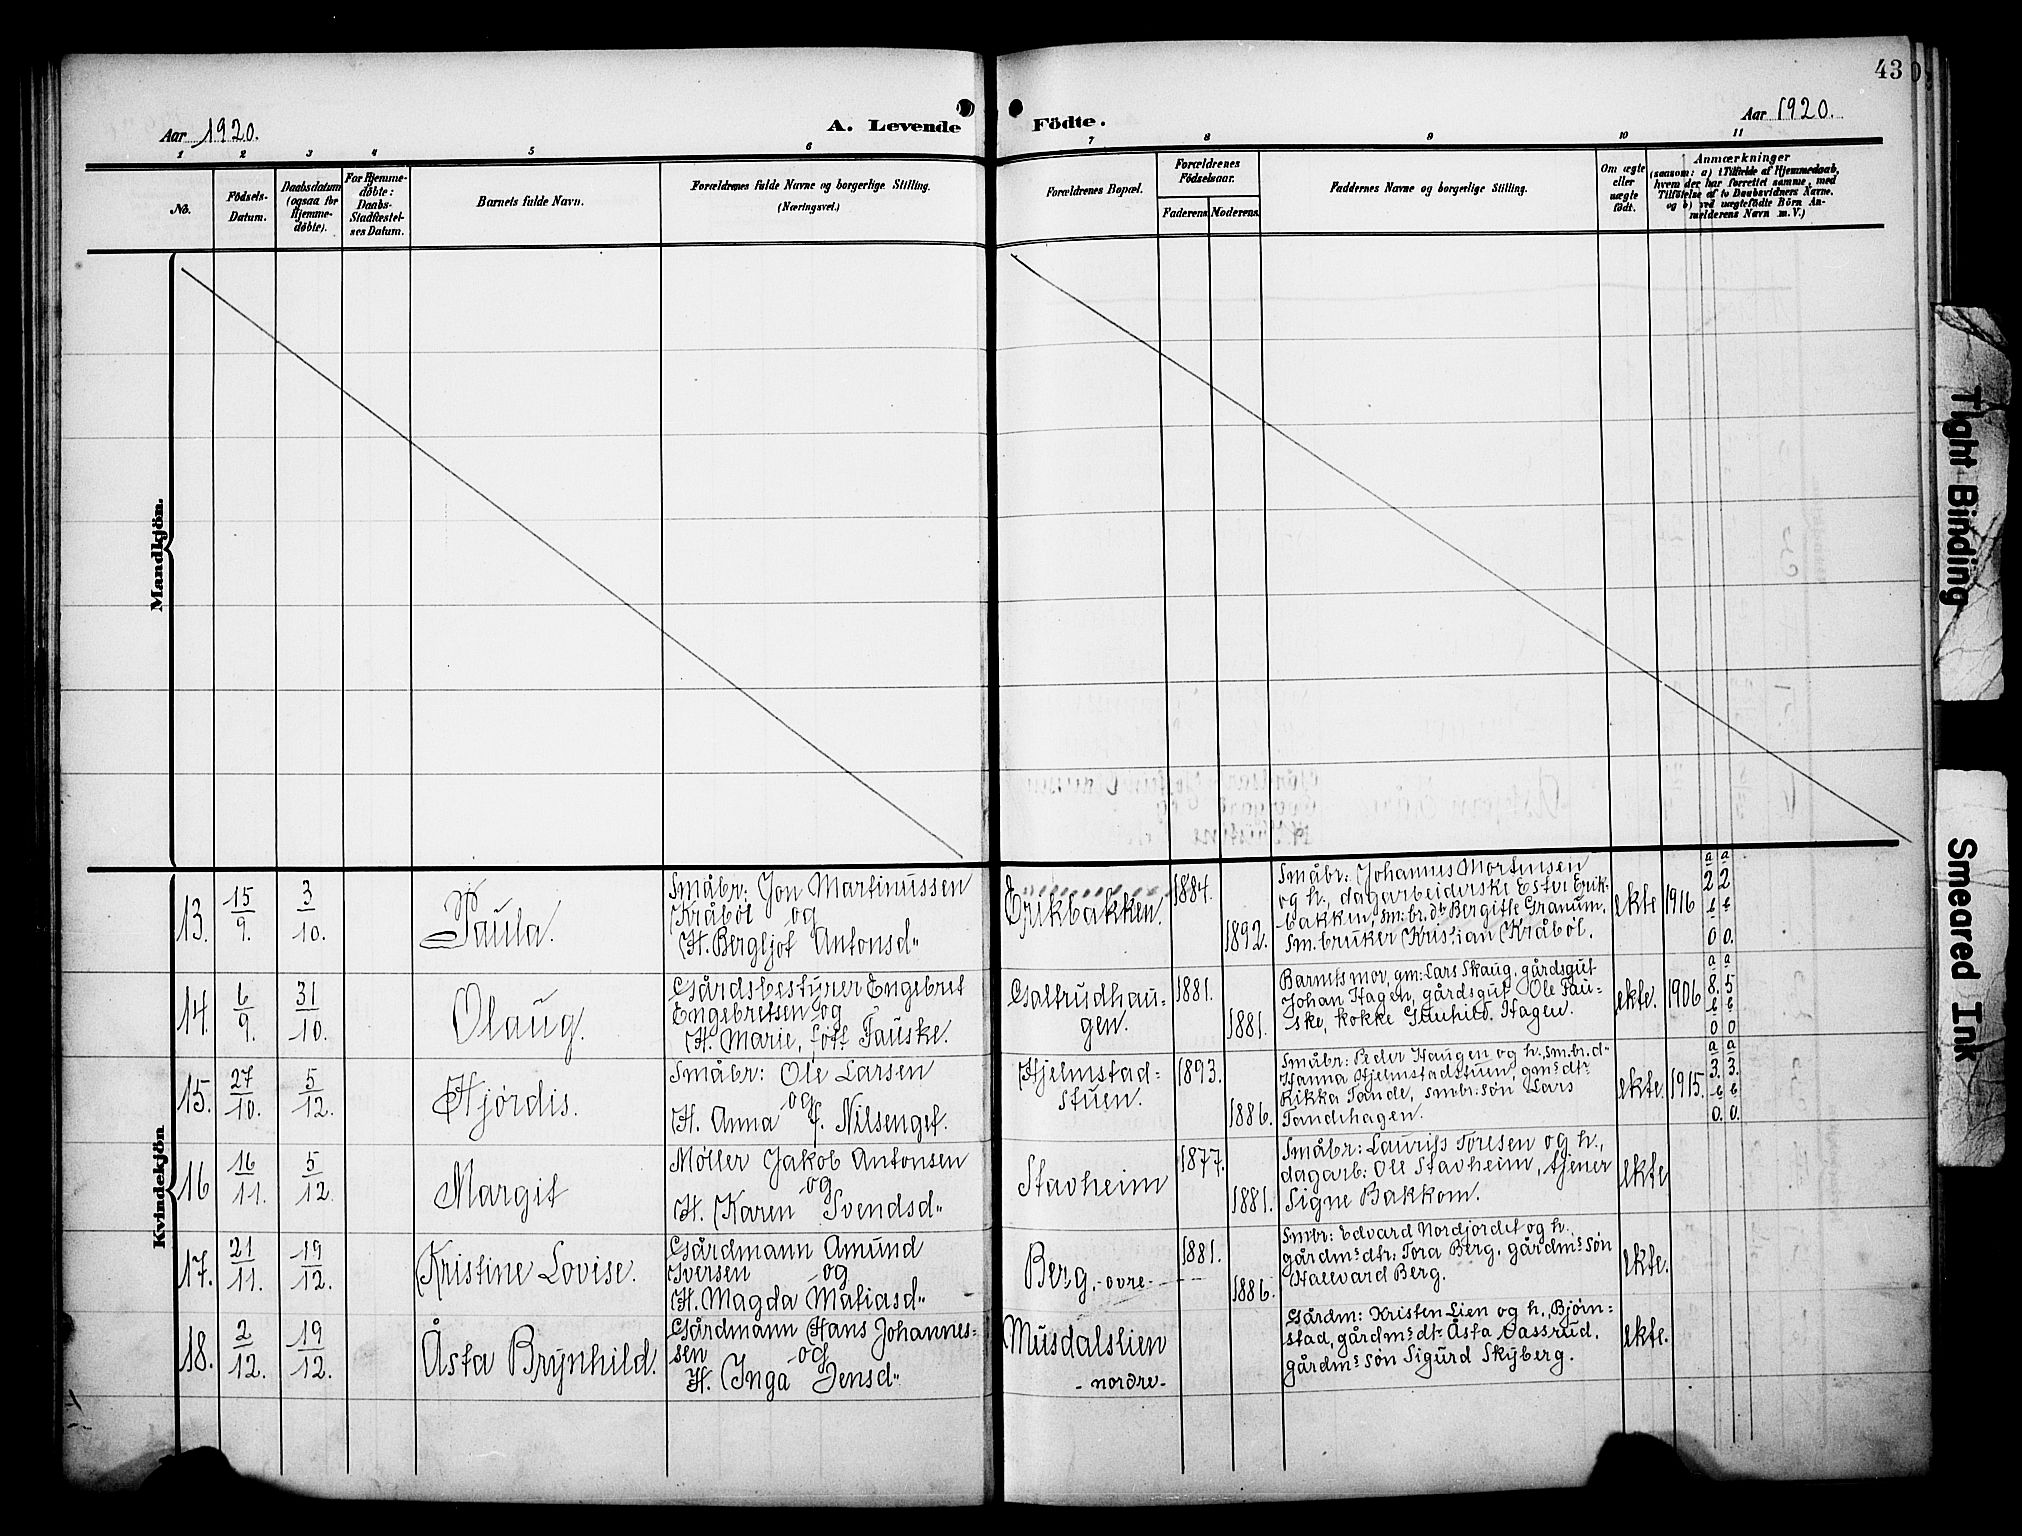 43
Aar 1920.
A. Levende Födte.
Aar 1920.
1 2 3 4 5 6 7 8 9 10 11
No.
Födsels-
Datum.
Daabsdatum
(ogsaa for
Hjemme-
døbte).
For Hjemme-
døbte:
Daabs-
Stadfæstel-
ses Datum.
Barnets fulde Navn.
Forældrenes fulde Navne og borgerlige Stilling.
(Næringsvei.)
Forældrenes Bopæl.
Forældrenes
Födselsaar.
Faderens
Moderens
Faddernes Navne og borgerlige Stilling.
Om ægte
eller
uægte
født.
Anmærkninger
(saasom: a) i Tilfælde af Hjemmedaab,
hvem der har forrettet samme, med
Tilföielse af to Daabsvidners Navne.
og b) ved uægtefødte Börn An-
melderens Navn m. V.)
Mandkjön.
Kvindekjön
13.
15/9.
3/10.
Paula.
Småbr: Jon Martinussen
Kråbøl og
H. Bergljot Antonsd"
Erikbakken.
1884.
1892.
Småbr: Johannes Mortensen
og h, dagarbeiderske Ester Erik-
bakken, sm.br.dtr Bergitte Granum,
Sm.bruker Kristian Kråbøl.
ekte
1916
a a
2 2
b b
0 0.
14.
6/9.
31/10.
Olaug.
Gårdsbestyrer Engebret
Engebretsen og
H. Marie, født Fauske.
Galtrudhau-
gen.
1881.
1881.
Barnets mor, gm: Lars Skaug, gårdsgut
Johan Hagen, gårdsgut Ole Fau-
ske, kokke Gunhild Hagen.
ekte.
1906
a a
8. 5
b b
0 0
15.
27/10.
5/12.
Hjørdis.
Småbr: Ole Larsen
og
H. Anna f. Nilsenget.
Hjelmstad-
stuen.
1893.
1886.
Småbr: Peder Haugen og h., sm.br.d-
Hanna Hjelmstadstuen, gms dtr
Rikka Tande, småbr: søn Lars
Tandehagen.
ekte.
1915.
a a
3. 3.
b b
0. 0.
16
16/11.
5/12.
Margit
Møller Jakob Antonsen
og
H. Karen Svendsd"
Stavheim
1877.
1881.
Småbr: Lauriss Toresen og h.,
dagarb: Ole Stavheim, tjener
Signe Bakkom.
ekte
17.
21/11.
19/12.
Kristine Lovise.
Gårdmann Amund
Iversen og
H. Magda Matiasd"
Berg, -øvre-
1881.
1886.
Smbr: Edvard Nordjordet og h.
gårdms dtr: Tora Berg, gårdms søn
Hallvard Berg.
ekte.
18.
2/12.
19/12.
Åsta Brynhild.
Gårdmann Hans Johannes-
sen og
H. Inga Jensd"
Musdalslien
- nordre -
Gårdm: Kristen Lien og h., Bjørn-
stad, gårdms dtr Åsta Aassrud,
gårdms søn Sigurd Skyberg.
ekte.
Tight Binding
Smeared Ink